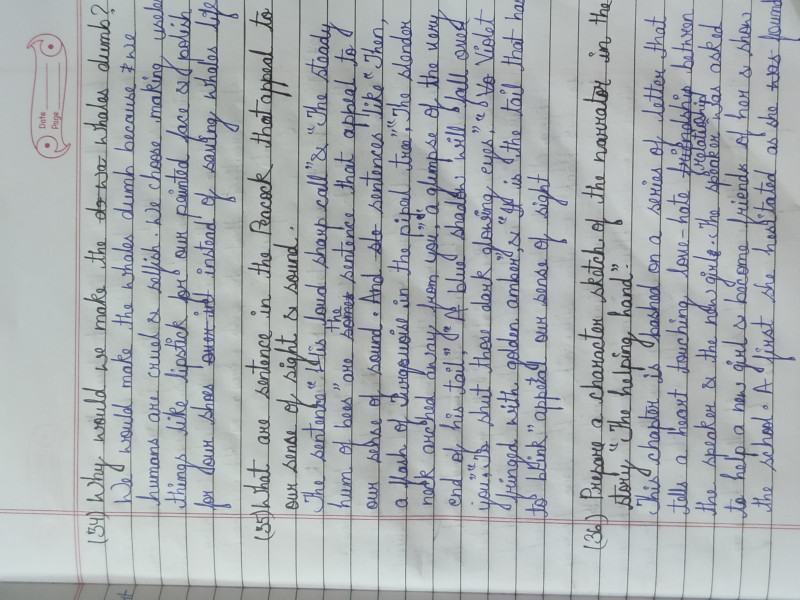 Date
Page
(34) Why would we make the whales dumb?
We would make the whales dumb because we
humans are cruel & selfish. We choose making
things like lipstick for our painted face & polish
for your shoes instead of saving whales life
(35) What are sentence in the Peacock that appeal to
our sense of sight & sound.
The sentence "His loud sharp call" & "The steady
hum of bees" are the sentence that appeal to
our sense of sound. And sentences like "Then,
a flash of turquoise in the pipal tree," "The slender
neck arched away from you," "a glimpse of the very
end of his tail," "A blue shadow will fall over
you," "to shut those dark glowing eyes," "Violet
fringed with golden amber," & "It is the tail that has
to blink" appeal our sense of sight
(36) Prepare a character sketch of the narrator in the
story "The helping hand".
This chapter is bashed on a series of letter that
tells a heart touching love-hate relationship between
the speaker & the new girl. The speaker was asked
to help a new girl & become friends of her & show
the school. A first she hesitated as she found